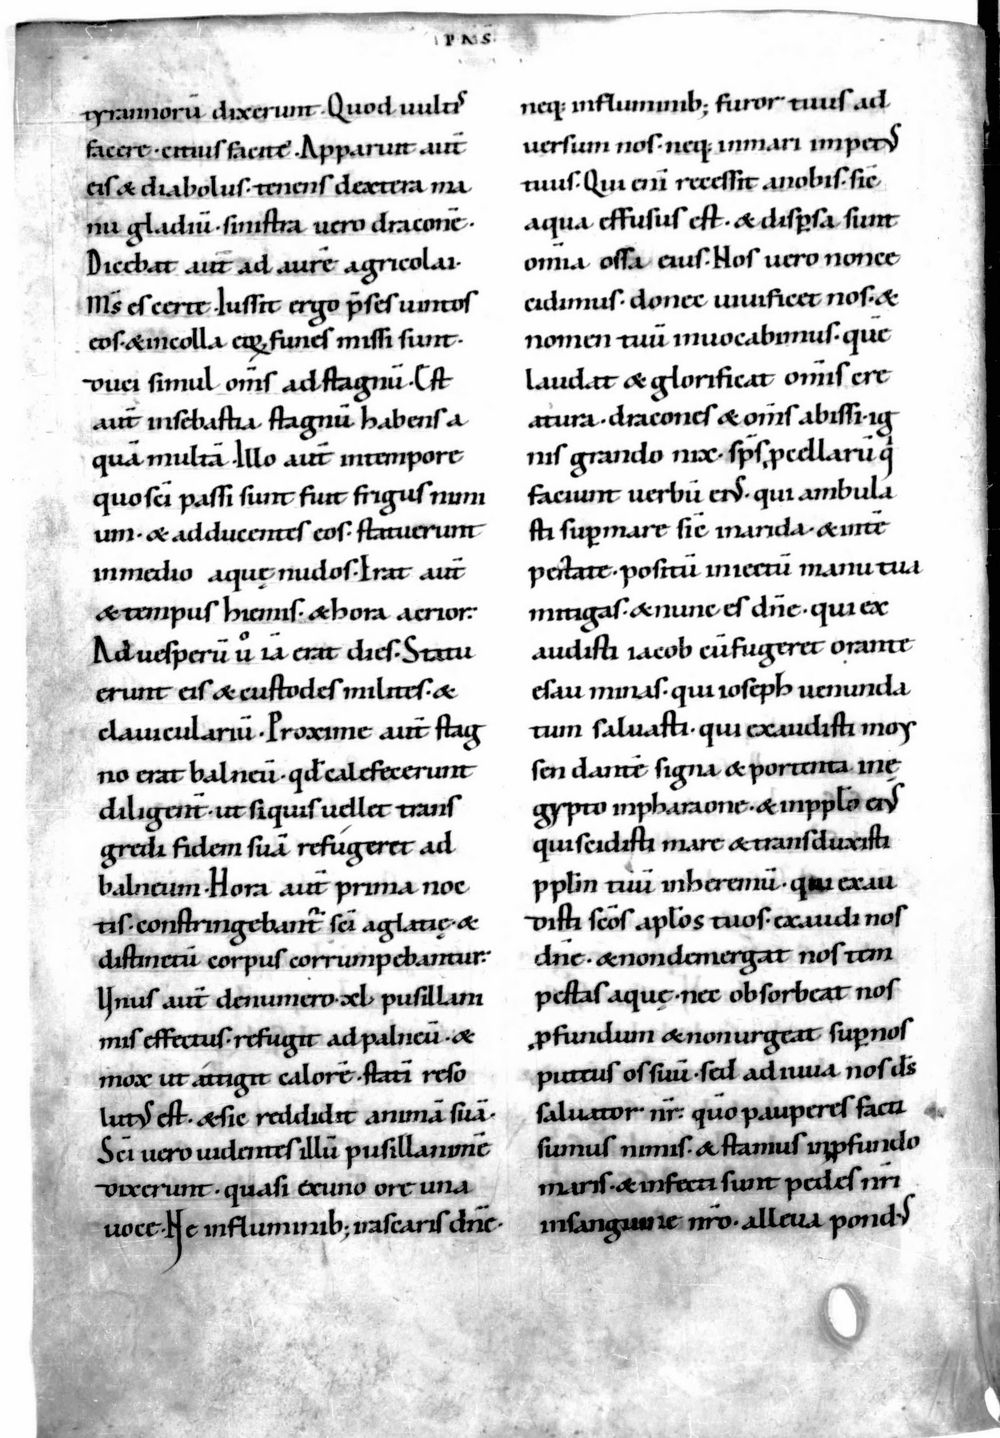 PMS
tyrannorū dixerunt. Quod uultis
facere. citius facite. Apparuit aut̄
eis & diabolus. tenens dextera ma
nu gladiū. sinistra uero draconē.
Dicebat aut̄ ad aurē agricolai.
Ms̄ es certe. Iussit ergo p̄ses uinctos
eos. & in colla eoꝝ funes missi sunt.
duci simul om̄s ad stagnū. Est
aut̄ insebastia stagnū habens a
quā multā. Illo aut̄ intempore
quo sc̄i passi sunt fuit frigus nimi
um. & adducentes eos. statuerunt
inmedio aquę nudos. Erat aut̄
& tempus hiemis. & hora aerior.
Ad uesperū ū iā erat dies. Statu
erunt eis & custodes milites. &
clauiculariū. Proxime aut̄ stag
no erat balneū. qđ calefecerunt
diligent̄. ut siquis uellet trans
gredi fidem suā refugeret ad
balneum. Hora aut̄ prima noc
tis. constringebant᷑ sc̄i aglatię. &
distinctū corpus corrumpebantur.
Unus aut̄ denumero. xl. pusillani
mis effectus. refugit ad palneū. &
mox ut attigit calorē. statī reso
lutꝰ est. & sic reddidit animā suā.
Sc̄i uero uidentes illū pusillanimē
dixerunt. quasi exuno ore una
uoce. Ne influminib; irascaris dn̄e.
neq; influminib; furor tuus ad
uersum nos. neq; inmari impetꝰ
tuus. Qui eni recessit anobis. sic̄
aqua effusus est. & dispsa sunt
om̄ia ossa eius. Nos uero nonce
cidimus. donec uiuificet nos. &
nomen tuū inuocabimus. quē
laudat & glorificat om̄is cre
atura. dracones & om̄s abissi. ig
nis grando nix. sps̄ ꝓcellarū q̄
faciunt uerbū eiꝰ. qui ambula
sti suꝑmare sic̄ inarida. & intē
pestate. positū iniectū manu tua
mitigas. & nunc es dn̄e. qui ex
audisti iacob cū fugeret orante
esau minas. qui ioseph uenunda
tum saluasti. qui exaudisti moy
sen dantē signa & portenta inę
gypto inpharaone. & inppl̄o eiꝰ
qui scidisti mare & transduxisti
ppl̄m tuū inheremū. qui exau
disti sc̄os apl̄os tuos. exaudi nos
dn̄e. & nondemergat nos tem
pestas aquę. nec obsorbeat nos
ꝓfundum & non urgeat suꝑ nos
puteus os suū. sed adiuua nos ds̄
saluator nr̄. quō pauperes facti
sumus nimis. & stamus inꝓfundo
maris. & infecti sunt pedes nr̄i
insanguine nr̄o. alleua pondꝰ